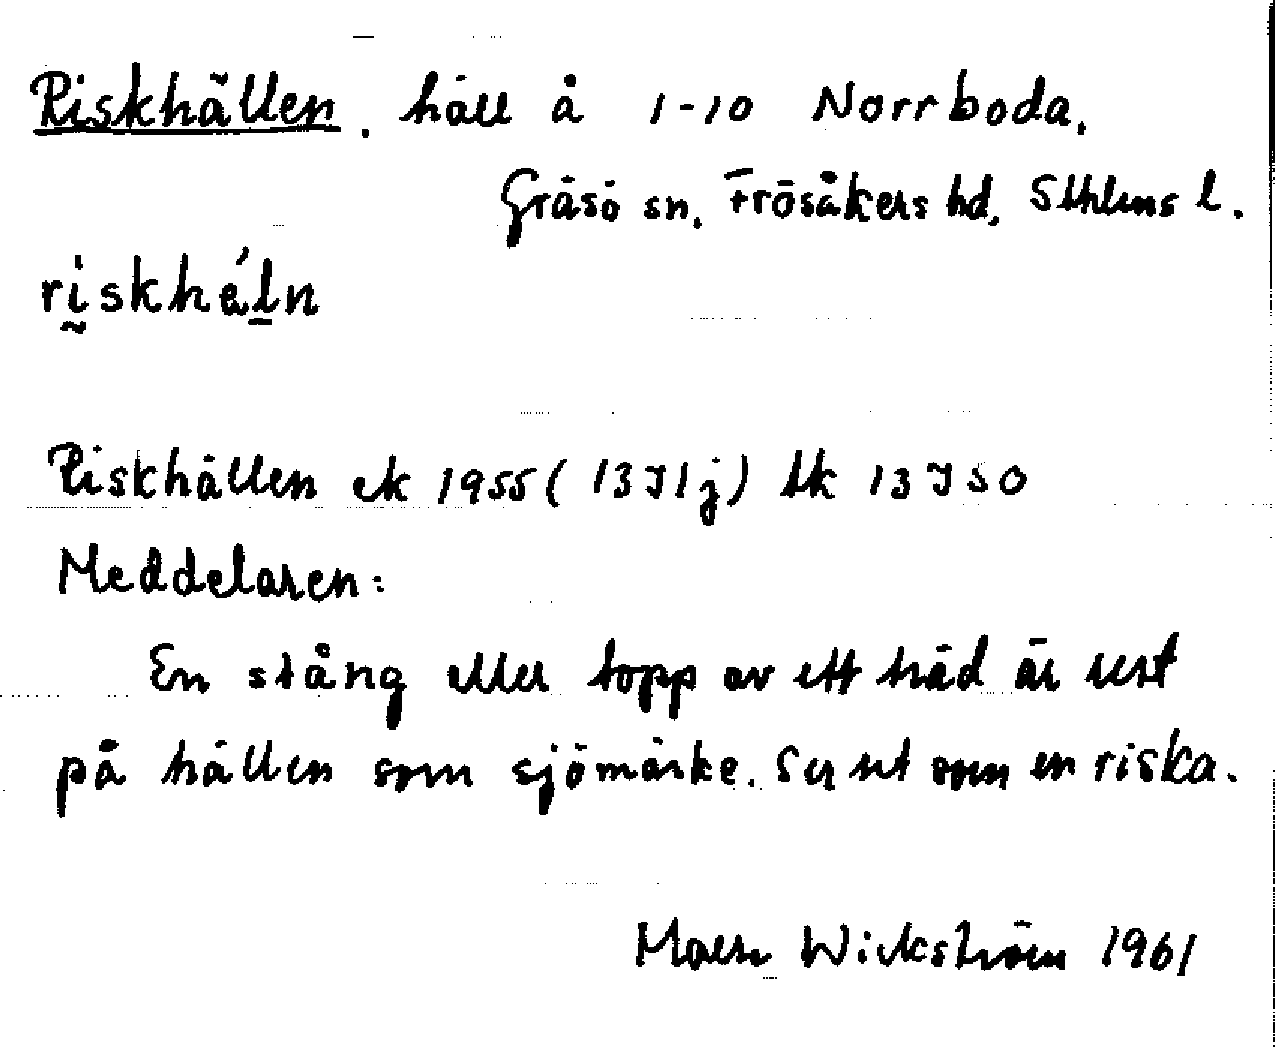 Riskhällen. häll å 1-10 Norrboda.
Gräsö sn, Frösåkers hd, Sthlms l.
riskhäln
Riskhällen ek 1955 (13I1j) tk 13ISO
Meddelaren:
En stång eller topp av ett träd är rest
på hällen som sjömärke. Ser ut som en riska.
Wickström 1961